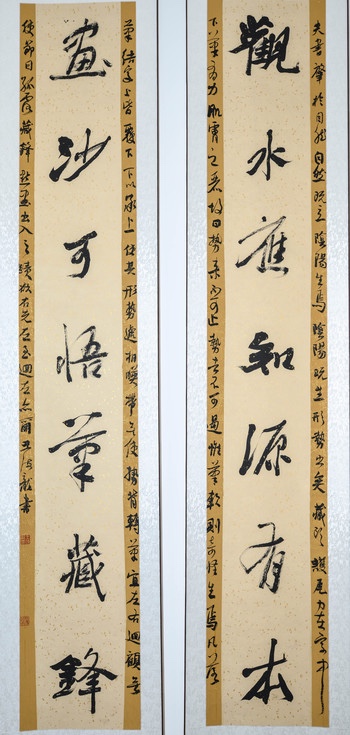 夫書肇於自然自然既立陰陽生焉陰陽既生形勢出矣藏頭護尾力在字中
觀水應知源有本
下筆用力肌膚之麗故曰勢來不可止勢去不可遏惟筆軟則奇怪生焉凡落
筆結字上皆覆下下以承上使其形勢遞相映帶無使勢背轉筆宜左右迴顧無
畫沙可悟筆藏鋒
使節目孤露藏鋒點畫出入之蹟欲右先左至迴左亦爾尹海龍書